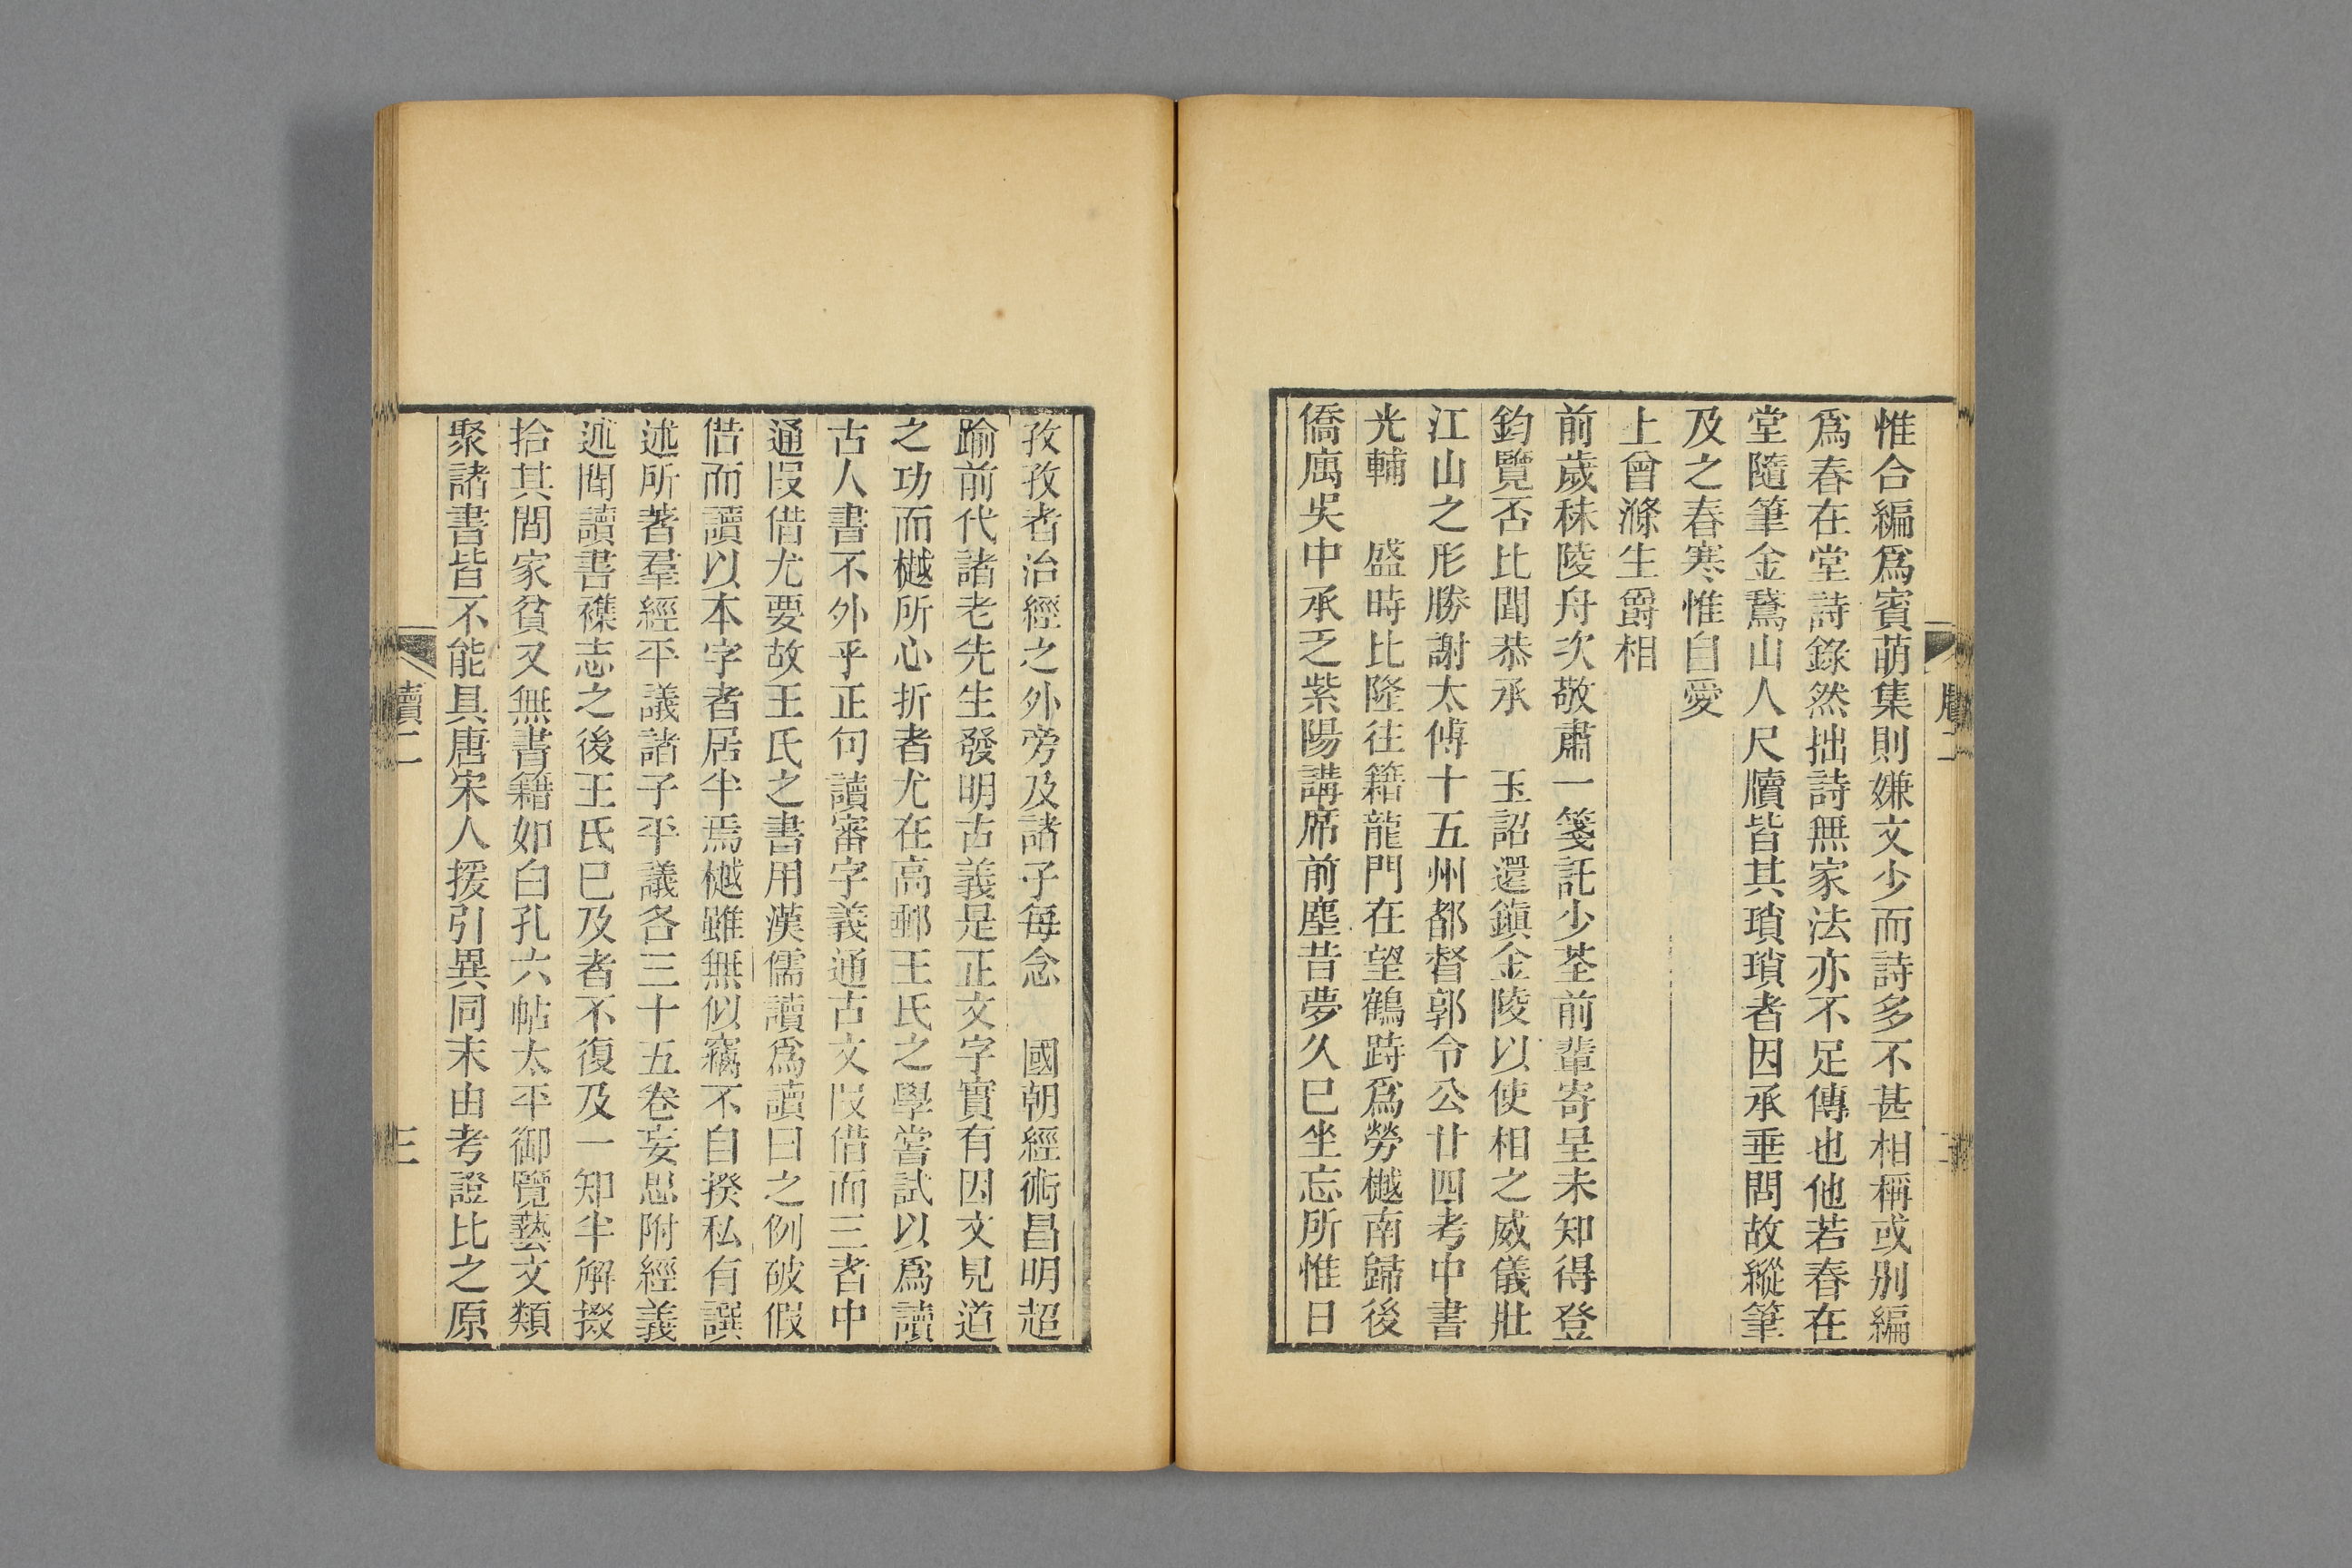 惟合編爲賓萌集則嫌文少而詩多不甚相稱或別編
爲春在堂詩錄然拙詩無家法亦不足傳也他若春在
堂隨筆金鵞山人尺牘皆其瑣瑣者因承垂問故縱筆
及之春寒惟自愛
上曾滌生爵相
前歲秣陵舟次敬肅一箋託少荃前輩寄呈未知得登
鈞覽否比聞恭承 玉詔還鎭金陵以使相之威儀壯
江山之形勝謝太傅十五州都督郭令公廿四考中書
光輔 盛時比隆往籍龍門在望鶴跱爲勞樾南歸後
僑寓吳中承乏紫陽講席前塵昔夢久已坐忘所惟日
孜孜者治經之外旁及諸子每念 國朝經術昌明超
踰前代諸老先生發明古義是正文字實有因文見道
之功而樾所心折者尤在高郵王氏之學嘗試以爲讀
古人書不外乎正句讀審字義通古文叚借而三者中
通叚借尤要故王氏之書用漢儒讀爲讀曰之例破假
借而讀以本字者居半焉樾雖無似竊不自揆私有譔
述所著羣經平議諸子平議各三十五卷妄思附經義
述聞讀書襍志之後王氏已及者不復及一知半解掇
拾其間家貧又無書籍如白孔六帖太平御覽藝文類
聚諸書皆不能具唐宋人援引異同末由考證比之原
牘二
三